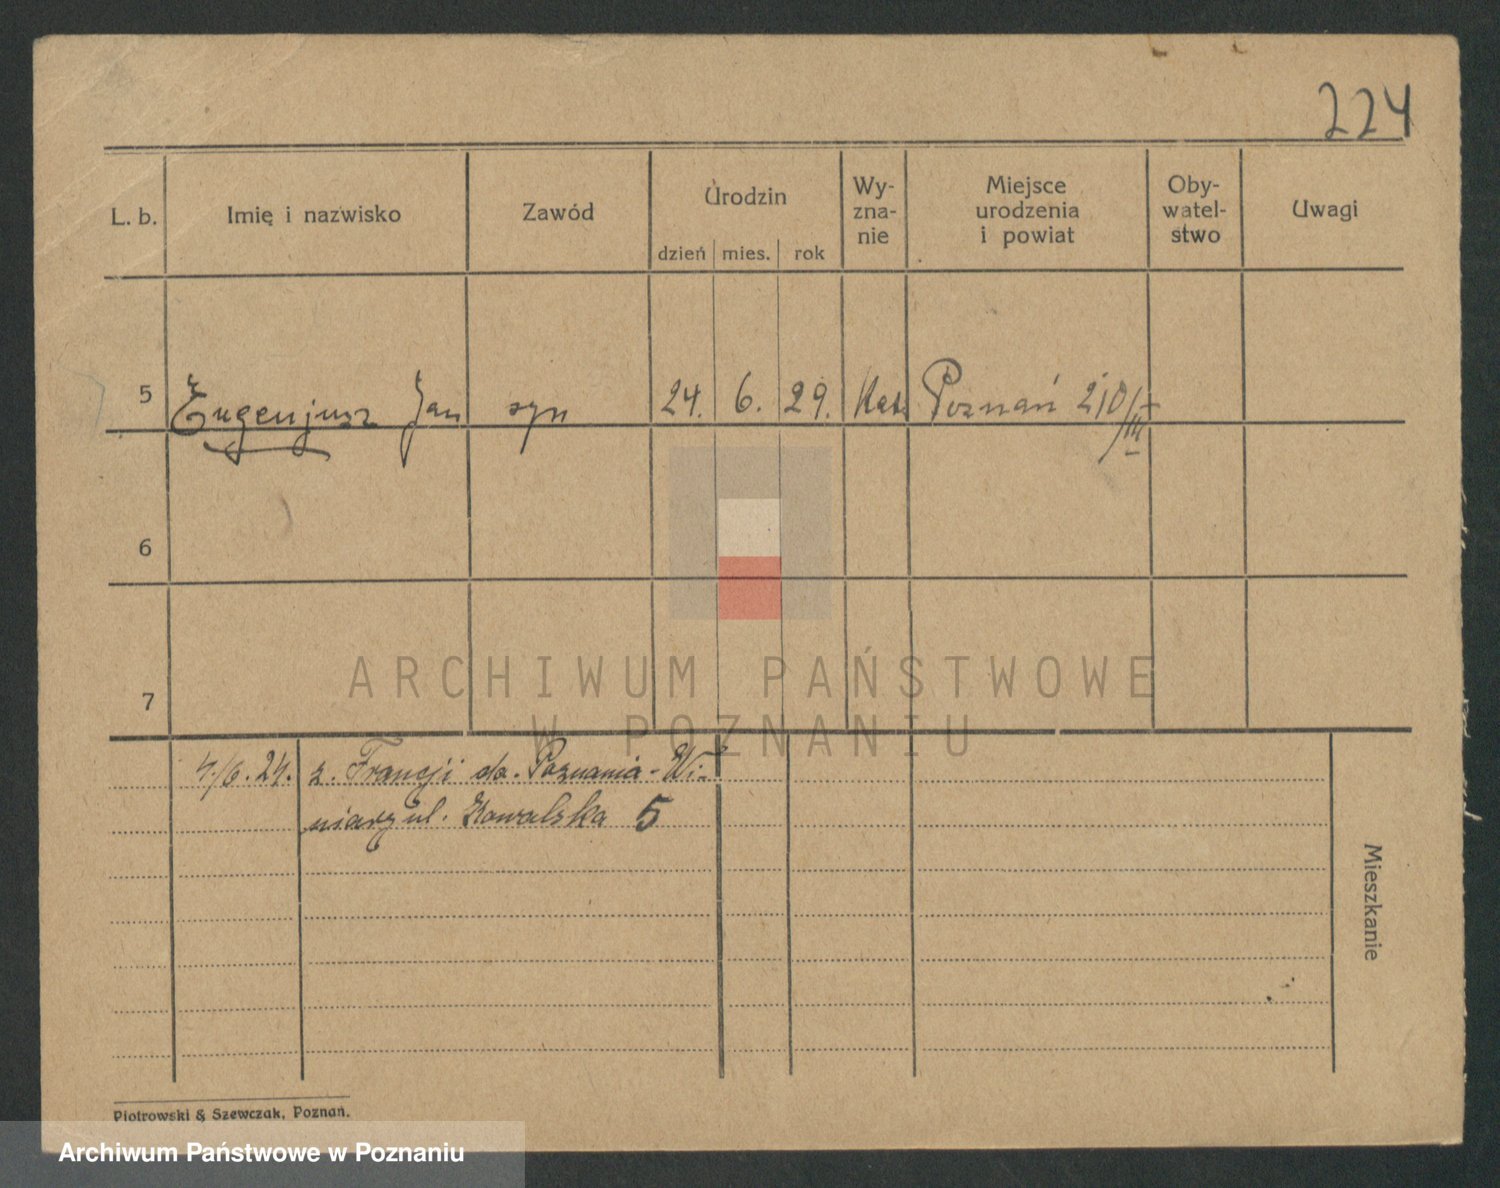 224
L. b. Imię i nazwisko Zawód Urodzin Wy-zna-nie Miejsce urodzenia i powiat Oby-watel-stwo Uwagi
dzień mies. rok
5 Eugenjusz Jan syn 24. 6. 29. Kat. Poznań 210/III
6
7
ARCHIWUM PAŃSTWOWE
W POZNANIU
4/6.24. z. Francji do. Poznania-Wi-
niary ul. Kowalska 5
Mieszkanie
Piotrowski & Szewczak, Poznań.
Archiwum Państwowe w Poznaniu